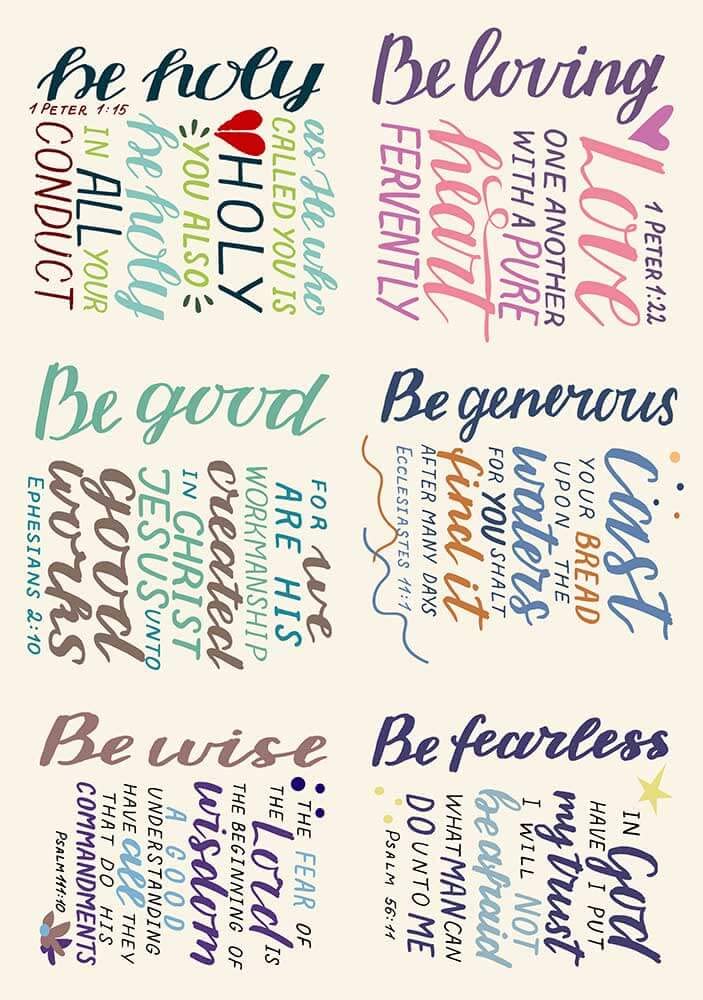 be holy
1 PETER 1:15
as He who
CALLED YOU IS
HOLY
YOU ALSO
be holy
IN ALL YOUR
CONDUCT
Be loving
1 PETER 1:22
Love
ONE ANOTHER
WITH A PURE
heart
FERVENTLY
Be good
FOR we
ARE HIS
WORKMANSHIP
created
IN CHRIST
JESUS UNTO
good
works
EPHESIANS 2:10
Be generous
Cast
YOUR BREAD
UPON THE
waters
FOR YOU SHALT
find it
AFTER MANY DAYS
ECCLESIASTES 11:1
Be wise
THE FEAR OF
THE Lord IS
THE BEGINNING OF
wisdom
A GOOD
UNDERSTANDING
HAVE all THEY
THAT DO HIS
COMMANDMENTS
PSALM 111:10
Be fearless
IN God
HAVE I PUT
my trust
I WILL NOT
be afraid
WHAT MAN CAN
DO UNTO ME
PSALM 56:11